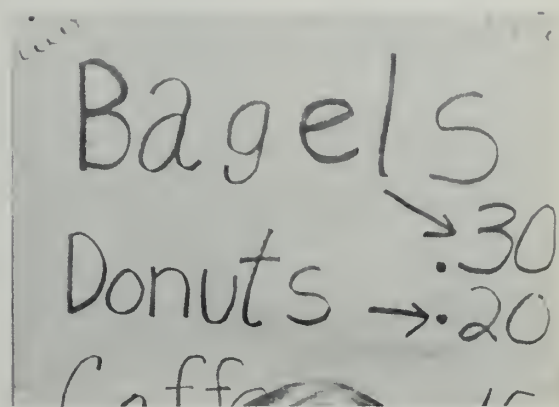 Bagels
→ .30
Donuts → .20